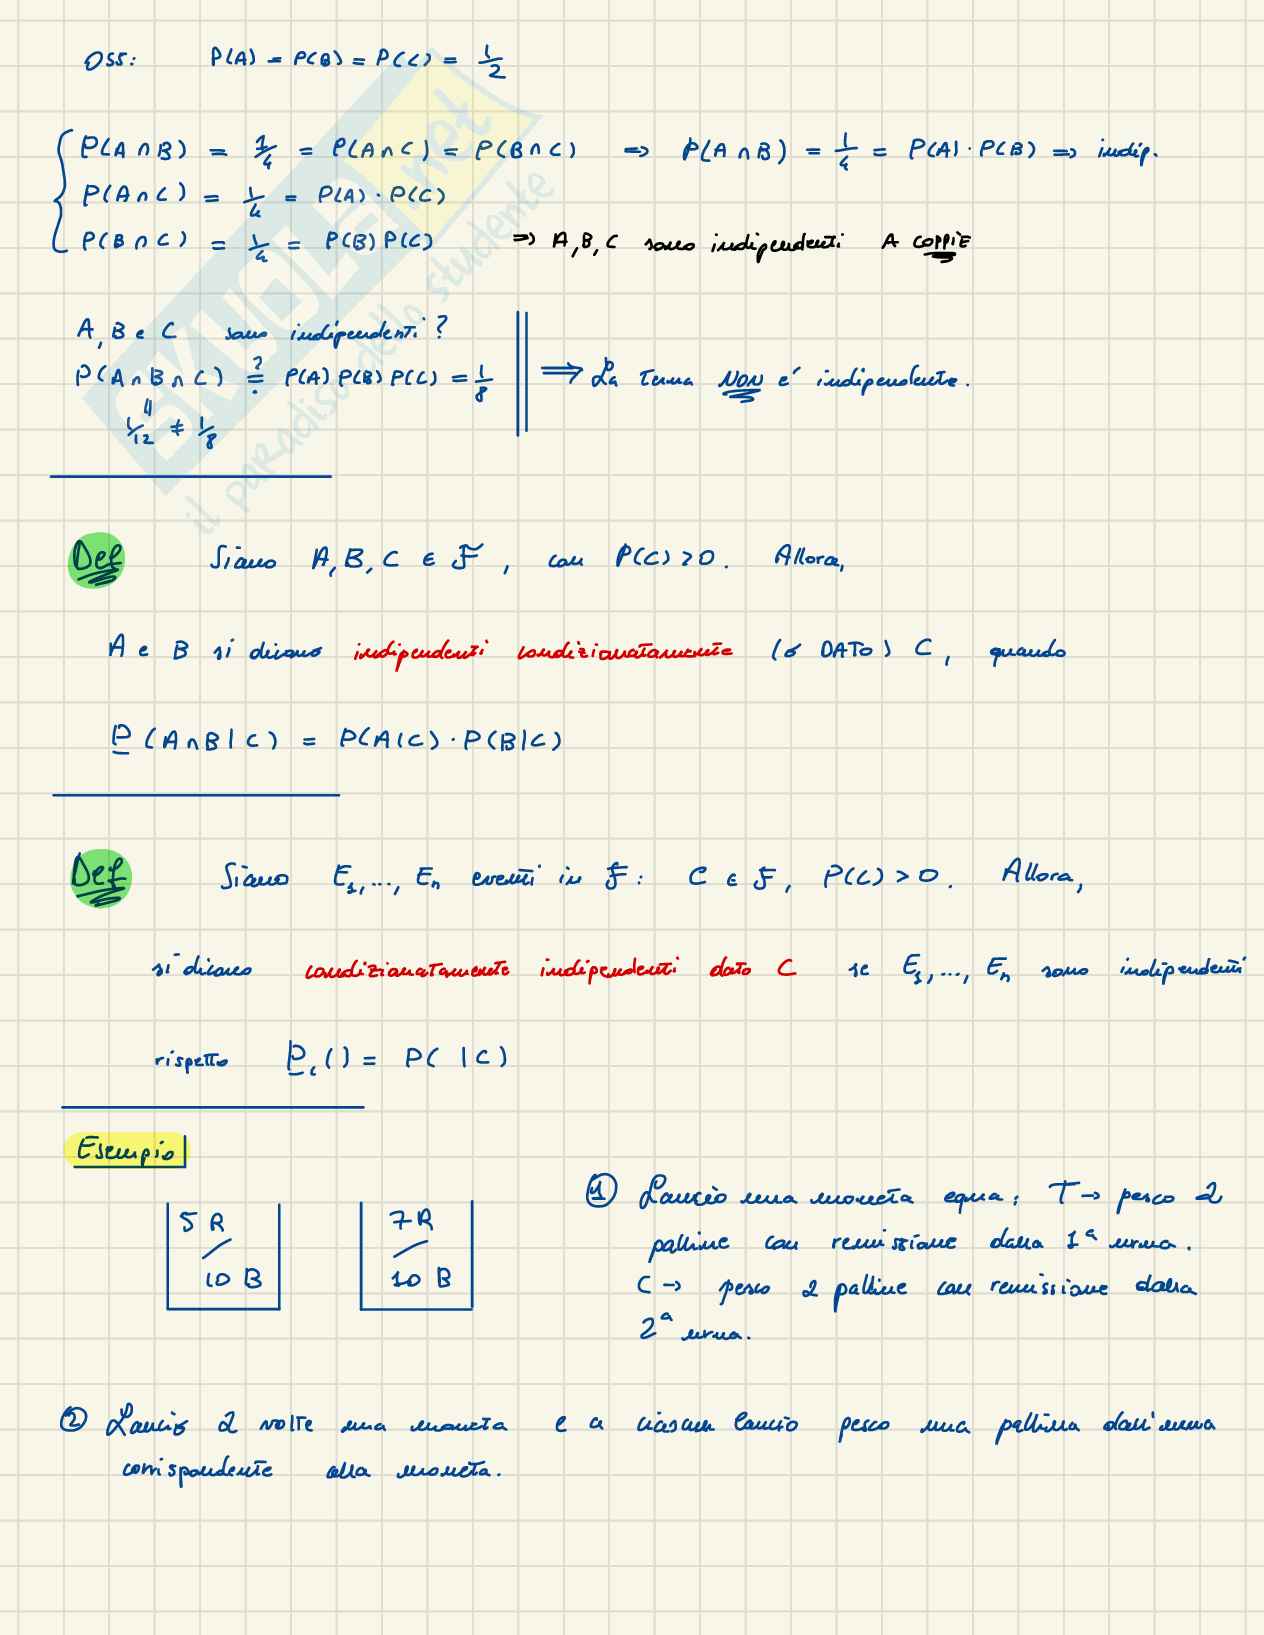 OSS: P(A) = P(B) = P(C) = 1/2
P(A ∩ B) = 1/4 = P(A ∩ C) = P(B ∩ C) => P(A ∩ B) = 1/4 = P(A) · P(B) => indip.
P(A ∩ C) = 1/4 = P(A) · P(C)
P(B ∩ C) = 1/4 = P(B) P(C) => A, B, C sono indipendenti A COPPIE
A, B e C sono indipendenti?
P(A ∩ B ∩ C) ?= P(A) P(B) P(C) = 1/8 ⟹ La terna NON e' indipendente.
1/12 ≠ 1/8
Def Siano A, B, C ∈ F, con P(C) > 0. Allora,
A e B si dicono indipendenti condizionatamente (o DATO) C, quando
P(A ∩ B | C) = P(A|C) · P(B|C)
Def Siano E1, ..., En eventi in F: C ∈ F, P(C) > 0. Allora,
si dicono condizionatamente indipendenti dato C se E1, ..., En sono indipendenti
rispetto Pc() = P( |C)
Esempio
5 R / 10 B
7 R / 10 B
① Lancio una moneta equa: T → pesco 2
palline con remissione dalla 1ª urna.
C → pesco 2 palline con remissione dalla
2ª urna.
② Lancio 2 volte una moneta e a ciascun lancio pesco una pallina dall'urna
corrispondente alla moneta.
SKUOLA.net
il paradiso dello studente